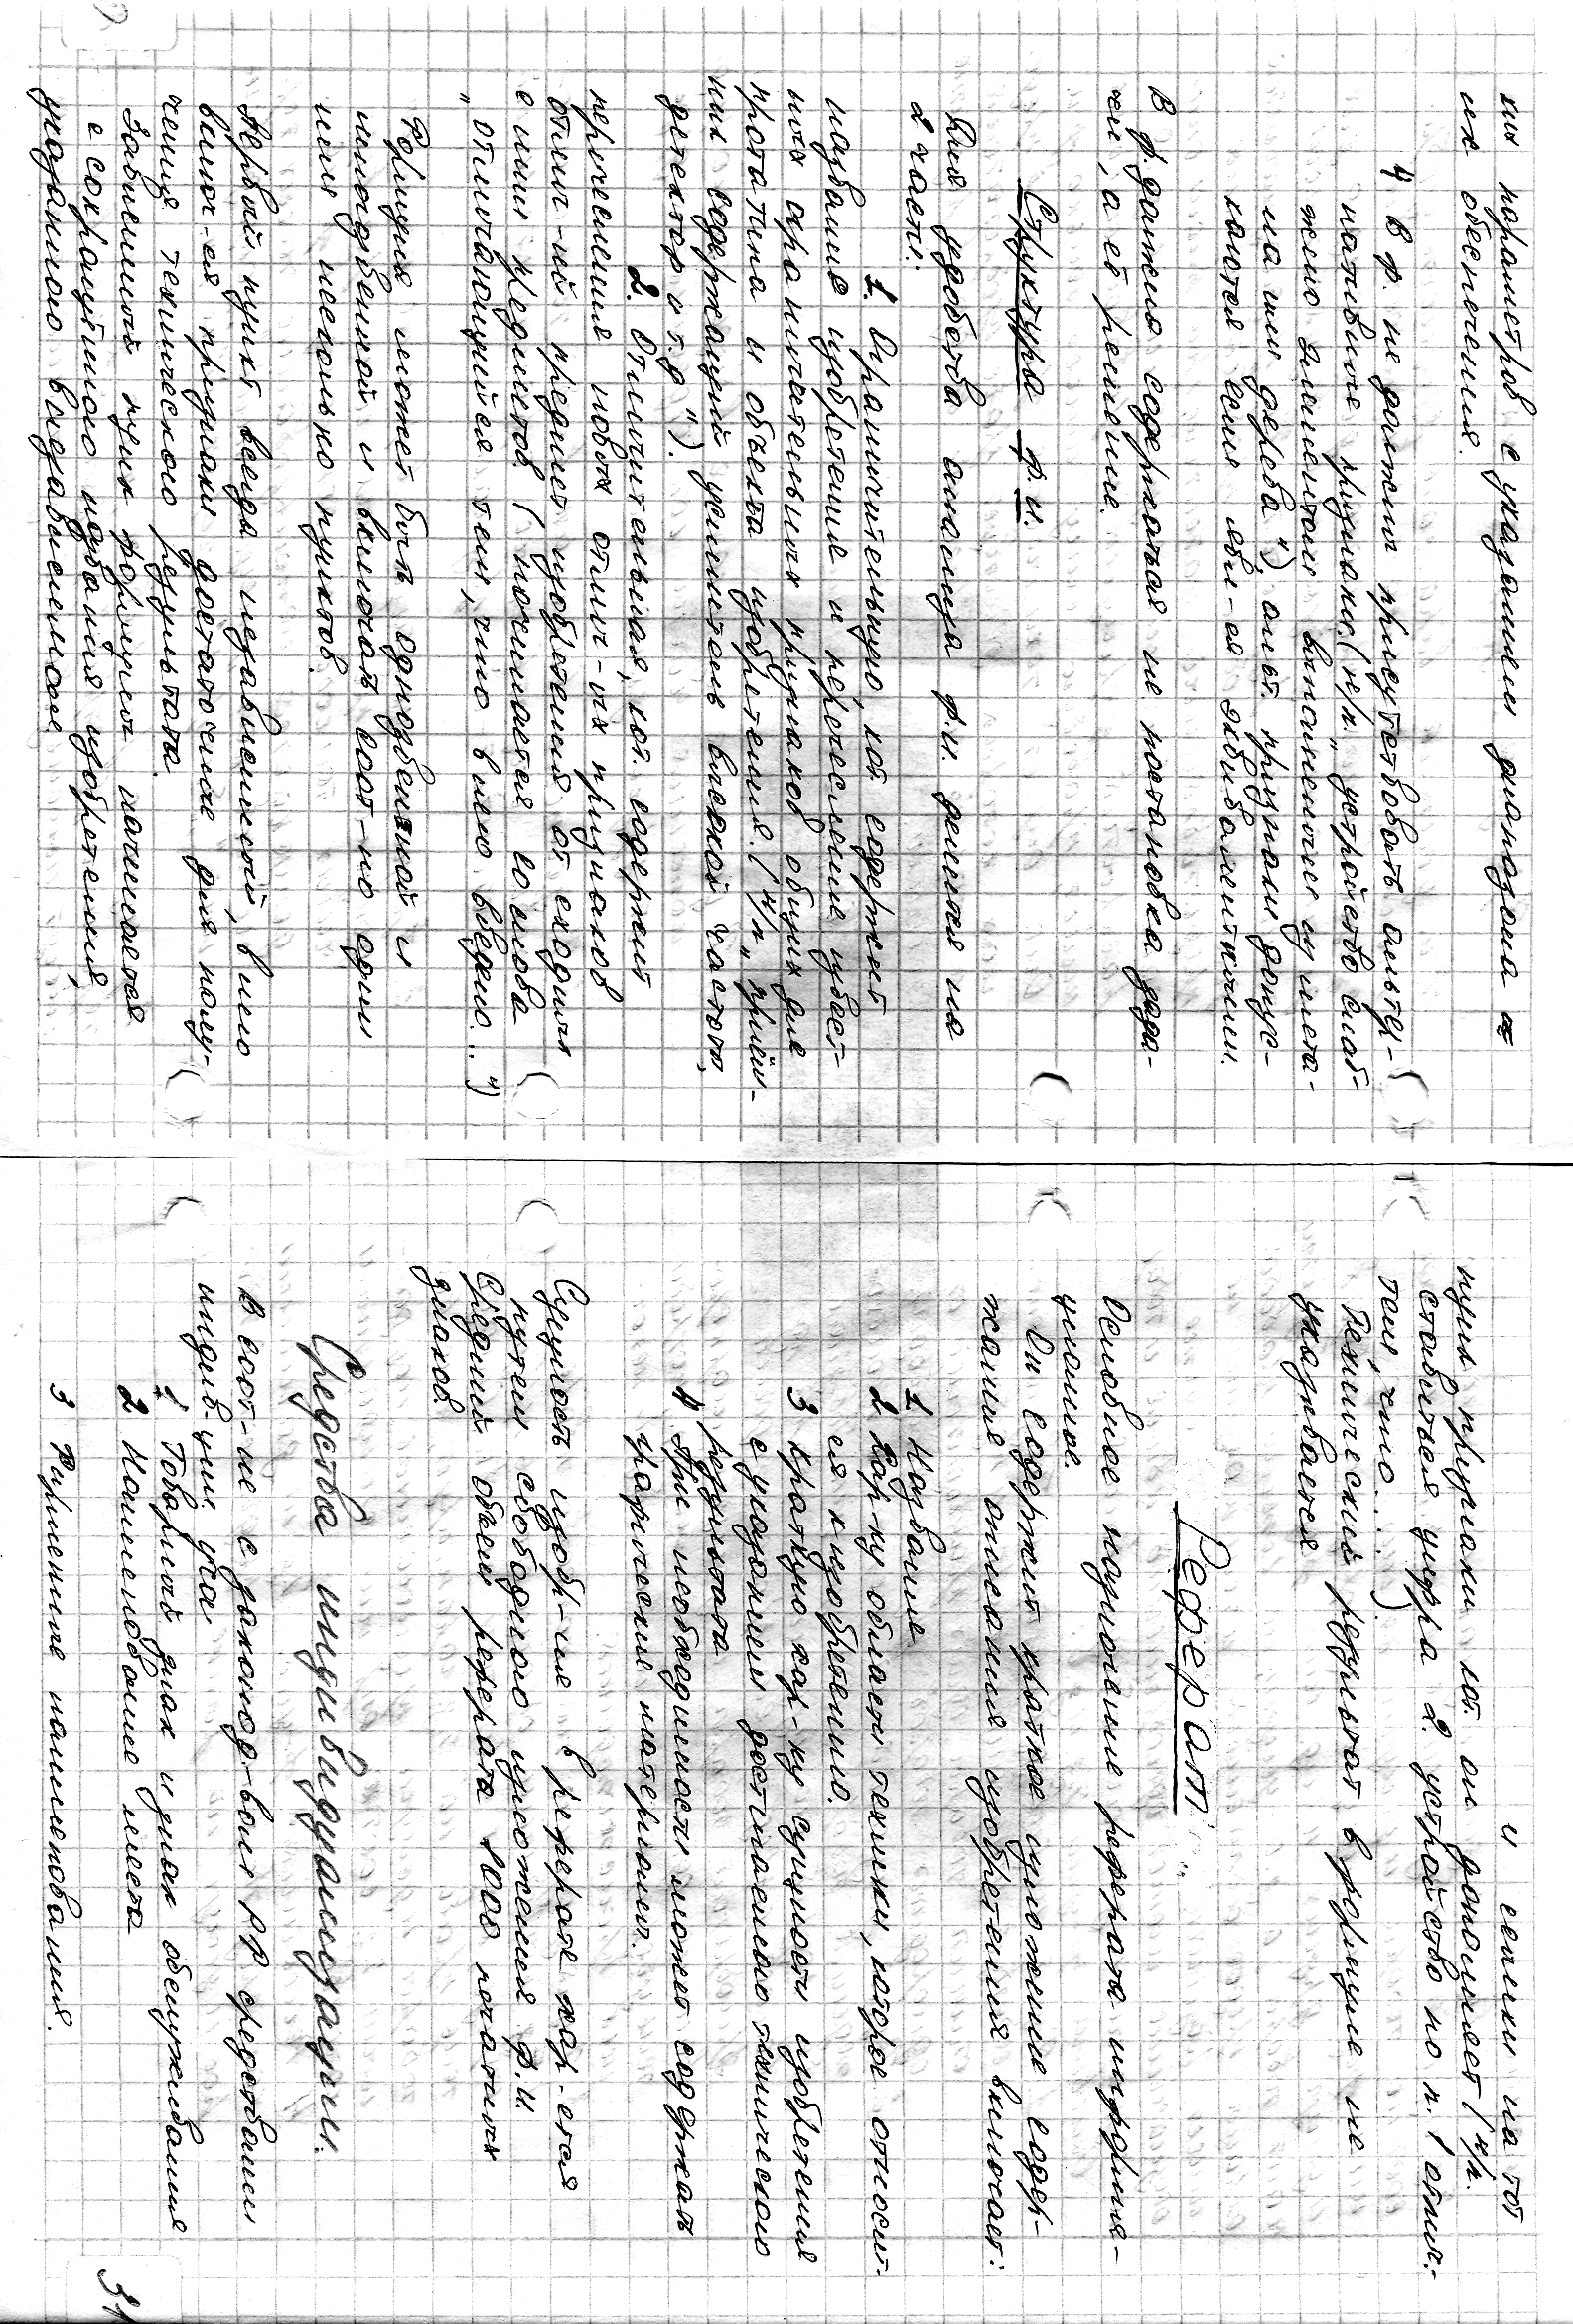 ких параметров с указанием диапазона
их обеспечения.
4 В ф. не должны присутствовать альтер-
нативные признаки. (н/п. „устройство снаб-
жено элементами выполненными из мета-
лла или дерева") альт. признаки допус-
каются если явл-ся эквивалентными.
В ф. должна содержаться не постановка зада-
чи, а её решение.
Структура ф.и.
Для удобства анализа ф.и. делится на
2 части.
1. Ограничительную, кот. содержит
название изобретения и перечисление извест-
ных ограничительных признаков общих для
прототипа и объекта изобретения. (н/п „приём-
ник содержащий усилитель высокой частоты,
детектор и т.д.").
2. Отличительная, кот. содержит
перечисление новых отлич-ых признаков
отлич-ий предмет изобретения от сходных
с ним предметов (начинается со слова
„отличающийся тем, что в него введено..")
Формула может быть однозвенной и
многозвенной и включать соот-но один
или несколько пунктов.
Первый пункт всегда независимый, в него
включ-ся признаки достаточные для полу-
чения технического результата.
Зависимый пункт формулы начинается
с сокращённого названия изобретения,
указанного в независимом
пункт признаки кот. он дополняет (н/п.
и ссылки на тот
ставиться цифра 2. устройство по п. 1 отлич.-
тем, что....).
Технический результат в формуле не
указывается
Реферат
Основное назначение реферата информа-
ционное.
Он содержит краткое изложение содер-
жания описания изобретения включает:
1 Название
2 Хар-ку области техники, которое относит-
ся к изобретению.
3 Краткую хар-ку сущности изобретения
с указанием достигаемого технического
результата
4 При необходимости может содержать
графический материал.
Сущность изобр-ия в реферате хар-ется
путем свободного изложения ф.и.
Средний объем реферата 1000 печатных
знаков
Средства индивидуализации.
В соот-ие с законод-вом РФ средствами
индивид-ции. явл
1 Товарный знак и знак обслуживания
2 Наименование места
3 Фирменное наименования.
31